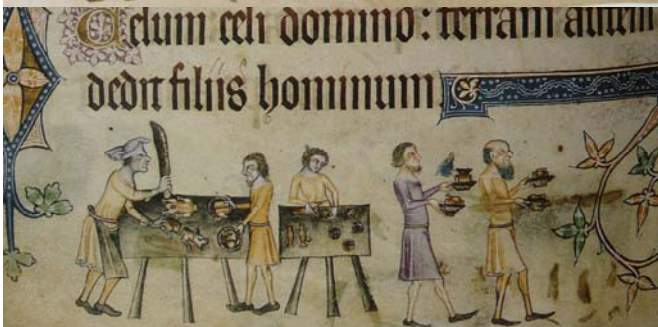 Celum celi domino: terram autem
dedit filiis hominum